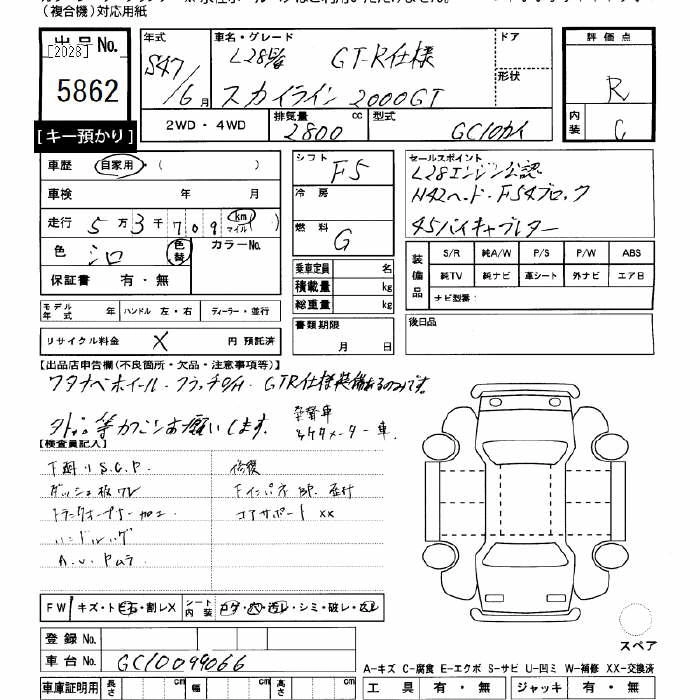 (複合機)対応用紙
出品No.
[2023]
5862
[キー預かり]
年式 S47/6月
車名・グレード L28 GT-R仕様
スカイライン2000GT
ドア
形状
評価点 R
内装 C
2WD・4WD
排気量 2800 cc
型式 GC10カイ
車歴 自家用・( )
車検 年 月
走行 5万3千709 km マイル ( )
色 シロ 色替 カラーNo.
保証書 有・無
モデル年式 年 ハンドル 左・右 ディーラー・並行
リサイクル料金 X 円 預託済
シフト F5
冷房
燃料 G
乗車定員 名
積載量 kg
総重量 kg
書類期限
月 日
セールスポイント
L28エンジン公認
N42ヘッド・F54ブロック
45パイキャブレター
装備品
S/R 純A/W P/S P/W ABS
純TV 純ナビ 革シート 外ナビ エアB
ナビ型番:
後日品
【出品店申告欄(不良箇所・欠品・注意事項等)】
ワタナベホイール・クラッチO/H・GTR仕様
等 お願いします。
メーター車.
【検査員記入】
下廻りS.C.P.
ダッシュ板ワレ
トランクオープナー加工
修復
コアサポートXX
FW キズ・トビ石・割レX
シート内装 コゲ・穴・汚レ・シミ・破レ・スレ
登録No.
車台No. GC10099066
車庫証明用 長さ cm 幅 cm 高さ cm
スペア
A-キズ C-腐食 E-エクボ S-サビ U-凹ミ W-補修 XX-交換済
工具 有・無 ジャッキ 有・無